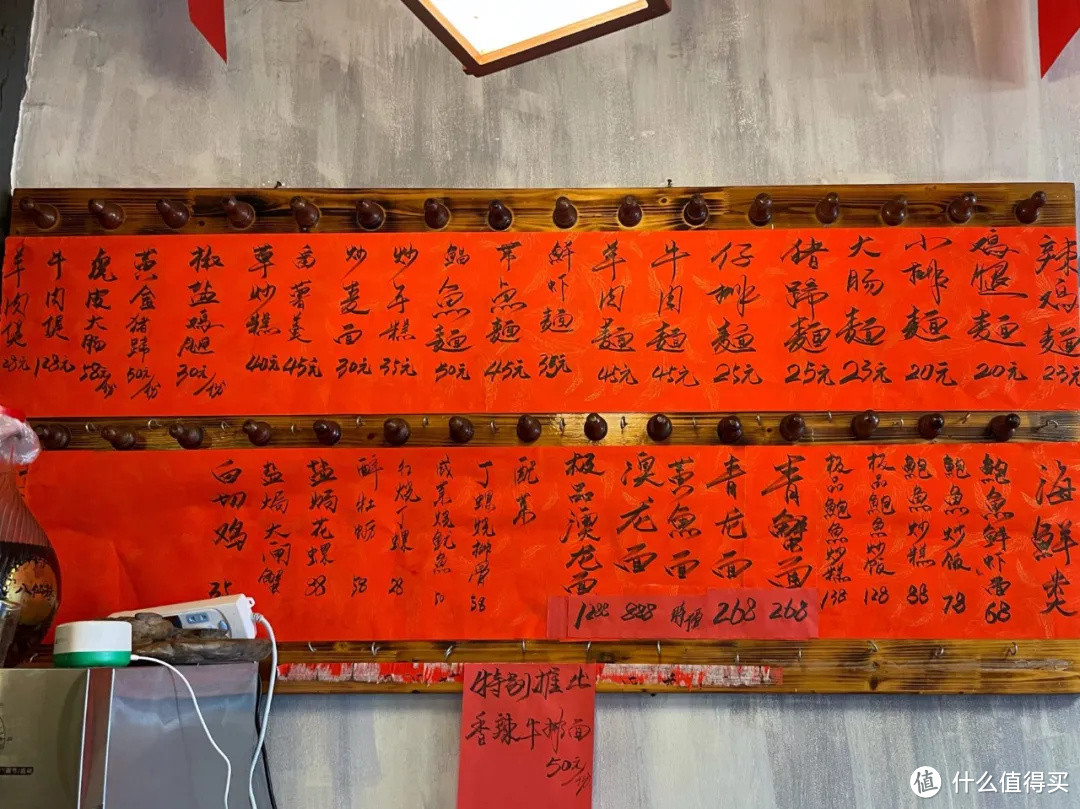 辣鸡麵 23元
鸡腿麵 20元
小排麵 20元
大肠麵 23元
猪蹄麵 25元
仔排麵 25元
牛肉麵 45元
羊肉麵 45元
鲜虾麵 35元
带鱼麵 45元
鲳鱼麵 50元
炒年糕 35元
炒麦面 30元
番薯 45元
草炒糕 40元
椒盐鸡腿 30元/份
黄金猪蹄 50元/份
虎皮大肠 58元/份
牛肉煲 128元
羊肉煲
海鲜类
鲍鱼鲜虾面 68
鲍鱼炒饭 78
鲍鱼炒糕 88
极品鲍鱼炒饭 128
极品鲍鱼炒糕 138
青蟹面 268
青龙面 268
黄鱼面
澳龙面 888
极品澳龙面 1288
配菜
丁螺烧排骨 58
咸菜烧鱿鱼 50
红烧丁螺 28
醉牡蛎 58
盐焗花螺 88
盐焗大闸蟹
白切鸡 35
特别推出
香辣牛排面
50元/份
值 什么值得买